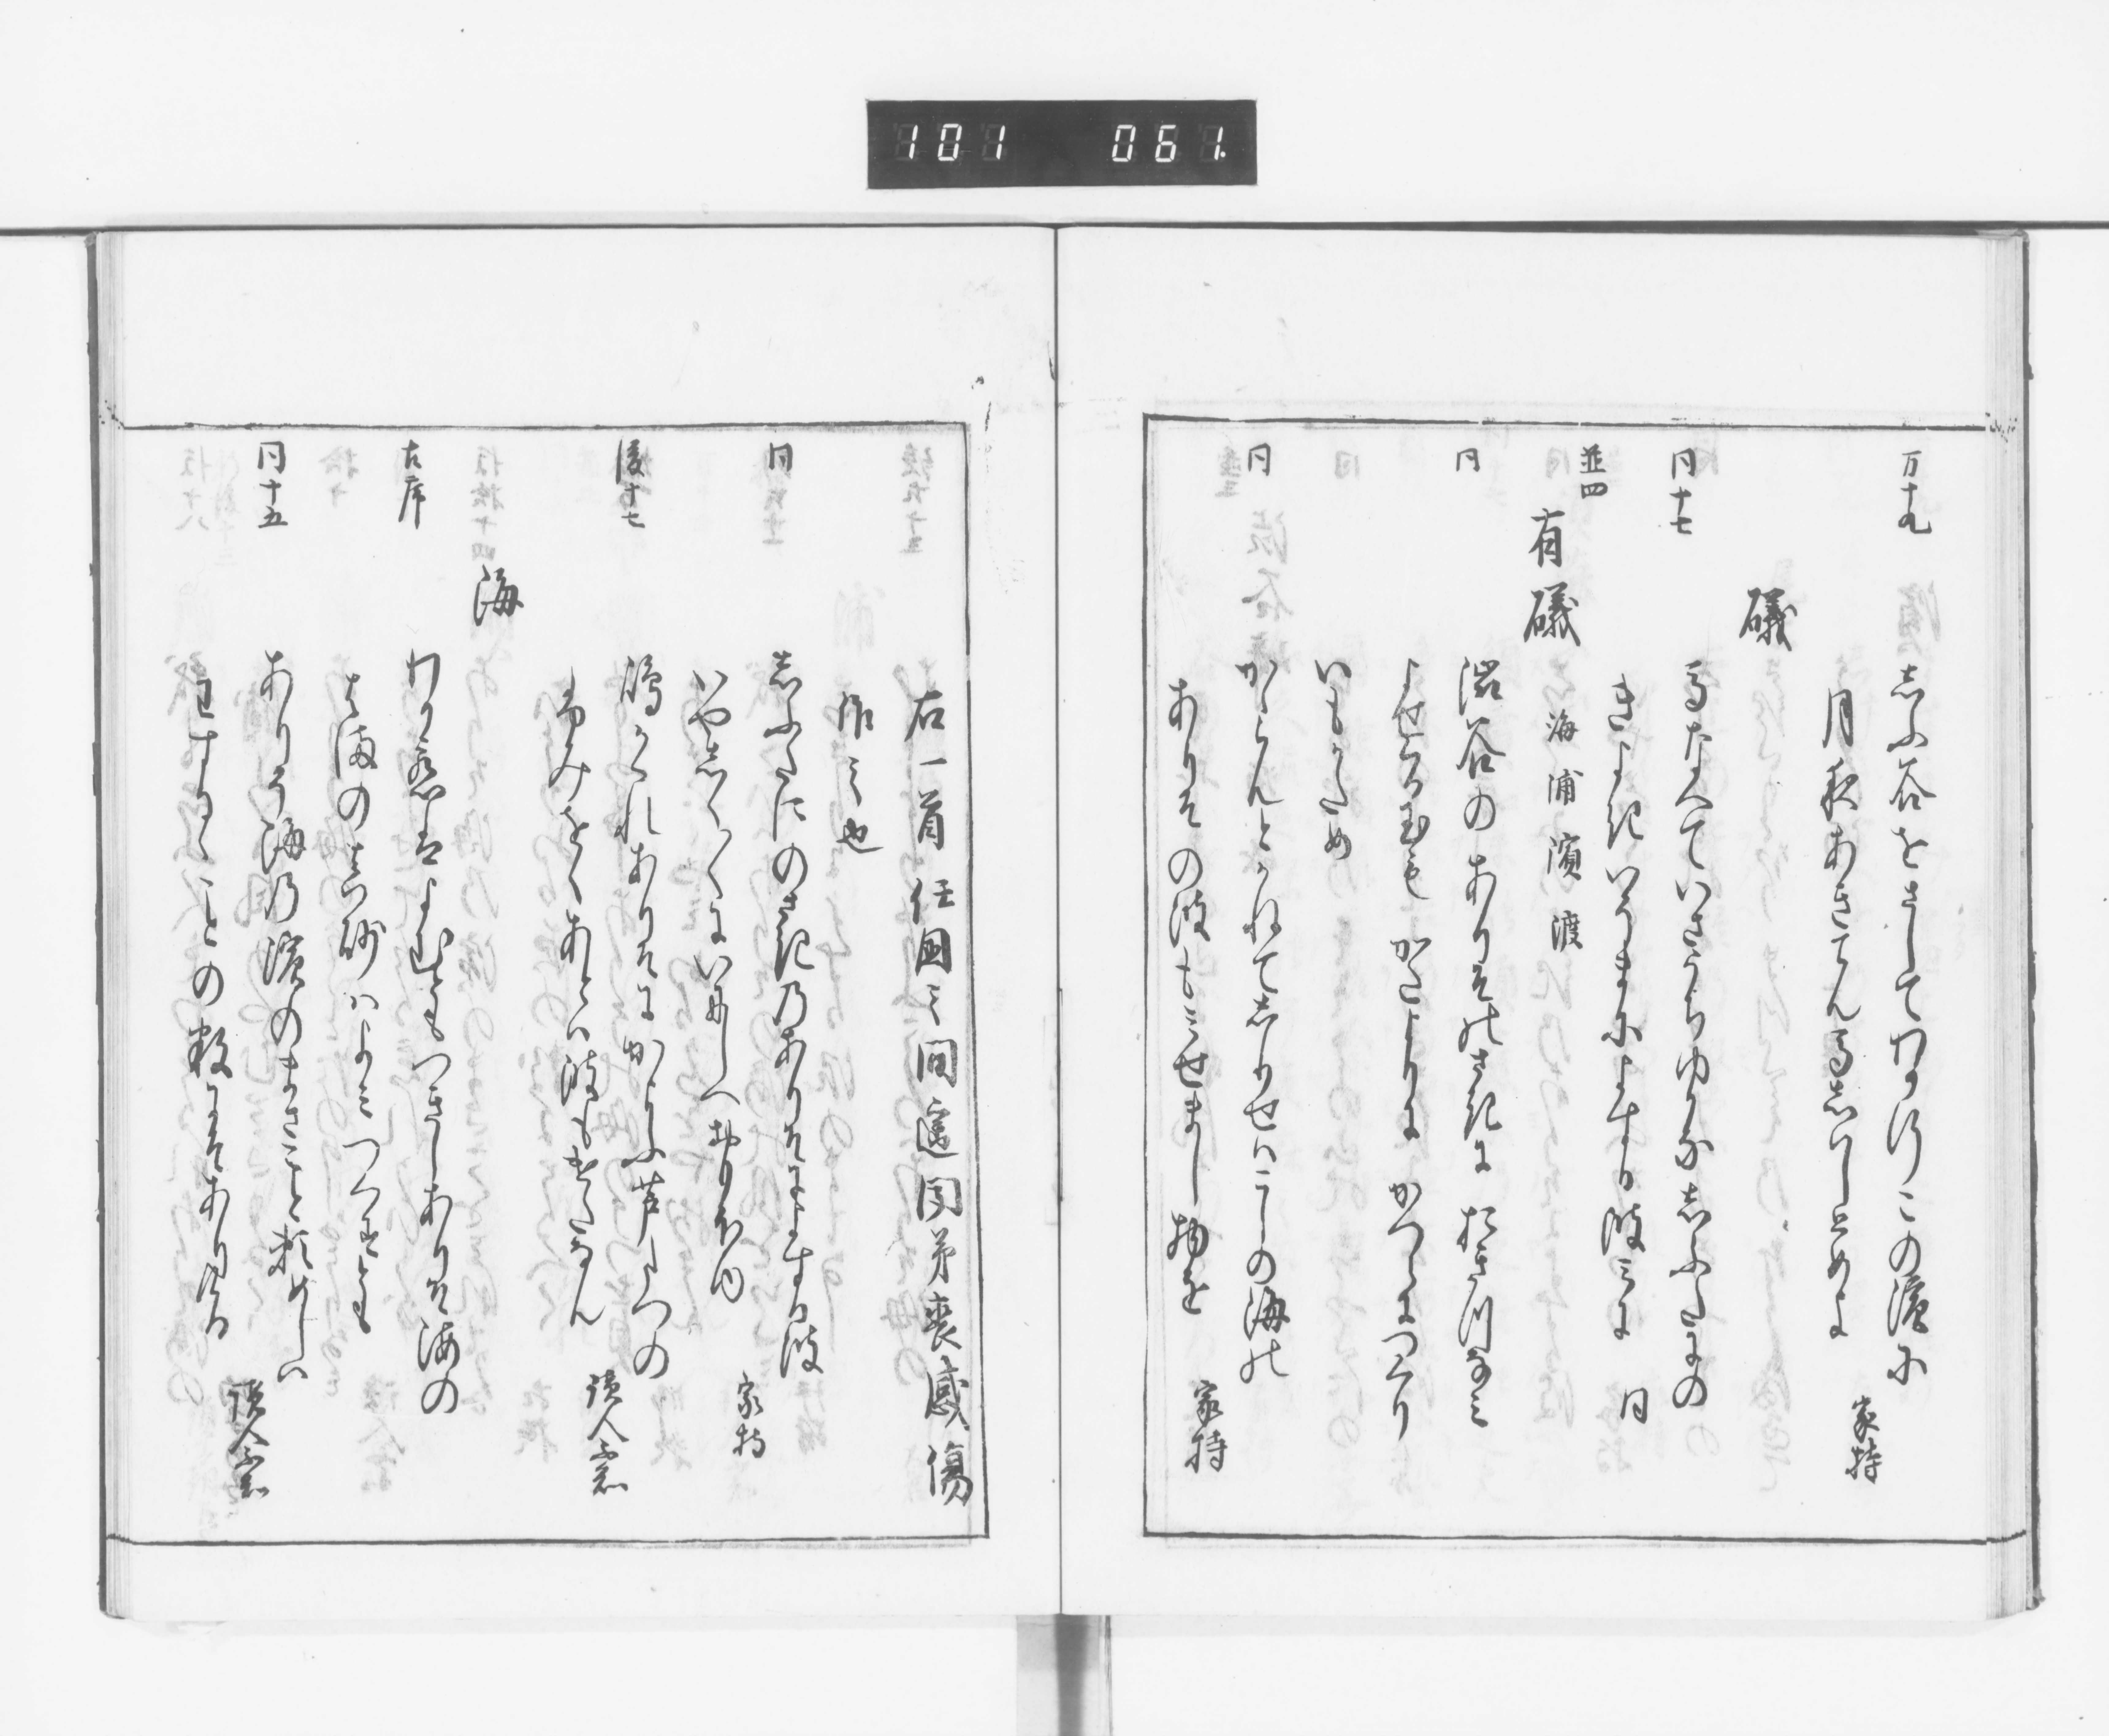 101 061.
万十九
志ふ谷をさしてわか行この濱に
月夜あきてん馬志はしとめよ
家持
礒
同十七
馬なへていさうちゆかな志ふたにの
きよきいそまによする波みに
同
並四
有礒
海 浦 濱 渡
同
澁谷のありそのさきにおきつなみ
よせくる玉もかたよりにかつらにつくり
いもかため
同
かゝらんとかねてしりせはこしの海の
ありその波もみせまし物を
家持
右一首任國之間遙聞弟喪感傷
作之也
同
志ふたにのさきのありそによする波
いやしく〳〵にいにしへおもほゆ
家持
後十七
ありそにかよふ芦たつの
あとは波もけたなん
讀人不知
海
古序
わか恋はよむともつきしありそ海の
はまの真砂はよみつくすとも
同十五
ありそ海の濱のまさこと頼めしは
わするゝことの数にそありける
讀人不知